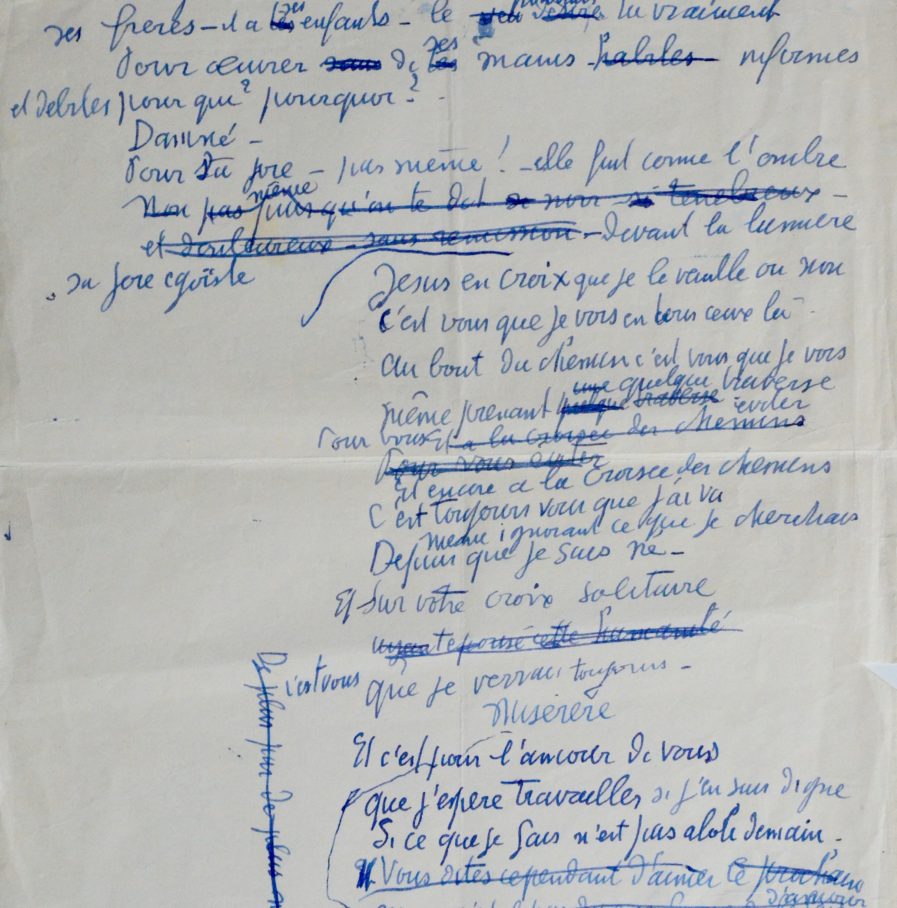 ses frères – il a ses enfants – le tu vraiment
Pour œuvrer sans de ses mains habiles informes
et debiles pour qui? pourquoi?
Damné –
Pour sa joie – pas même! – elle fuit comme l'ombre
Non pas même puisqu'on te dit si noir si tenebreux –
et douloureux – sans remission – devant la lumiere
sa joie egoïste
Jesus en croix que je le veuille ou non
c'est vous que je vois en tous ceux là
au bout du chemin c'est vous que je vois
même prenant quelque traverse
Pour vous eviter
et a la croisée des chemins
Pour vous eviter
Et encore a la croisée des chemins
C'est toujours vous que j'ai vu
même ignorant ce que je cherchais
Depuis que je suis né –
Et sur votre croix solitaire
cette humanité
c'est vous que je verrai toujours –
Miserere
Et c'est pour l'amour de vous
que j'espere travailler si j'en suis digne
Si ce que je fais n'est pas aboli demain –
Vous dites cependant d'aimer le prochain
d'amour
De plus en plus